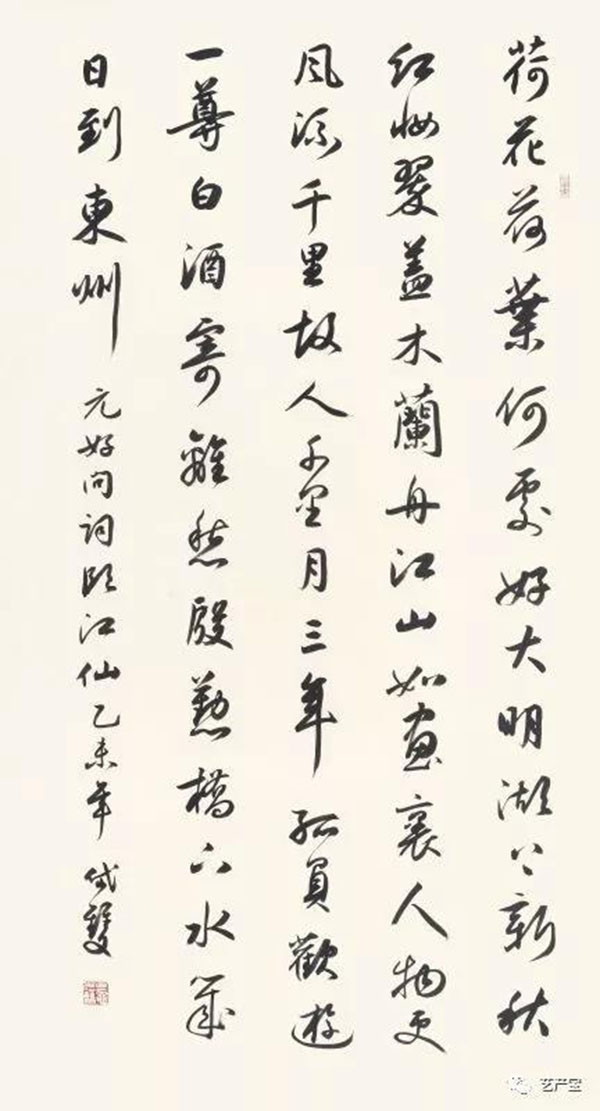 荷花荷葉何處好大明湖上新秋
紅妝翠蓋木蘭舟江山如畫裏人物更
風流千里故人千里月三年孤負歡遊
一尊白酒寄離愁殷勤橋下水幾
日到東州 元好问词临江仙乙未年
艺产宝